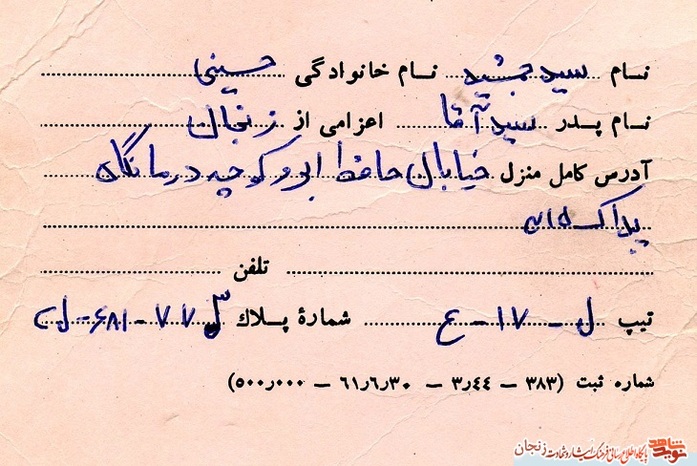 نام سید جمشید نام خانوادگی حسینی
نام پدر سید آقا اعزامی از زنجان
آدرس کامل منزل خیابان حافظ ابرو کوچه درمانگاه
پلاک
تلفن
تیپ ل - ۱۷ - ع شمارهٔ پلاك ۷۷ - ۶۸۱ - ل
شماره ثبت (۳۸۳ – ۳٫٤٤ – ۶۱٫۶٫۳۰ – ۵۰۰٫۰۰۰)
نوید شاهد پایگاه اطلاع رسانی فرهنگ ایثار و شهادت زنجان